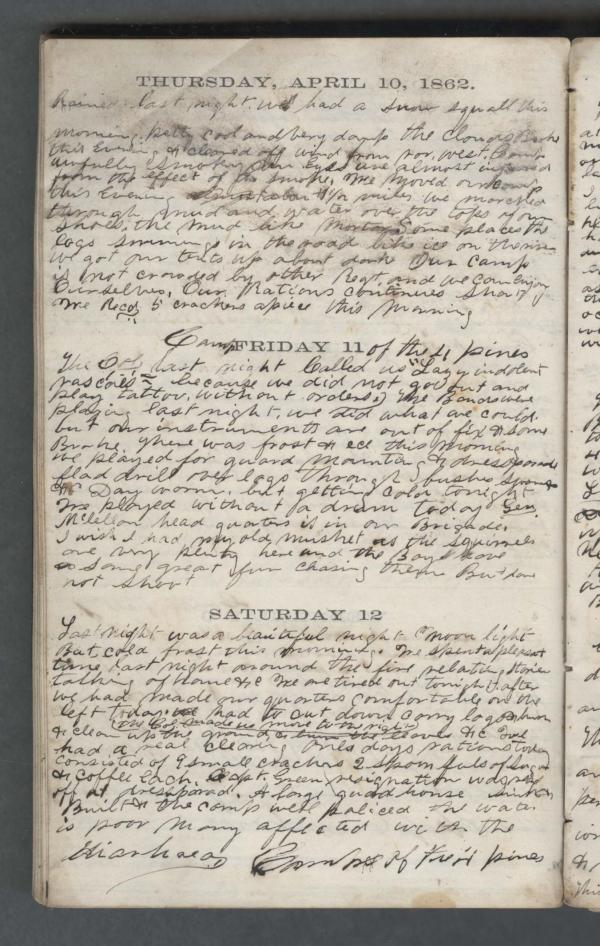 THURSDAY, APRIL 10, 1862.
Rained last night. we had a snow squall this
morning, pretty cool and very damp the clouds Broke
this Evening & cleared off wind from nor. west. Camp
awfully smokey our Eyes are almost
from the effect of the smoke. We moved our camp
this Evening about 1½ miles we marched
through mud and water over the tops of our
shoes, the mud like Mortar. Some places the
logs swimming in the road like ice on the rise
we got our tents up about dark Our Camp
is not crowded by other Regt. and we can Enjoy
Ourselves. Our Rations continues Short
We Recd 5 crackers apiece this Morning
Camp of the 4 pines
FRIDAY 11
The Col. last night Called us "Lazy indolent
rascals" because we did not go out and
play tattoo, without orders) The Bands were
playing last night, we did what we could.
but our instruments are out of fix & some
Broke, There was frost & ice this morning
we played for guard Mounting & dress parade
had drill over logs through bushes
&c Day warm, but getting cold tonight
We played without a drum today Gen.
McLellan head quarters is in our Brigade.
I wish I had my old musket as the squirrels
are very plenty here and the Boys have
some great fun chasing them But dare
not shoot
SATURDAY 12
Last night was a beautiful night moon light
But cold frost this morning. We spent a pleasant
time last night around the fire relating stories
talking of home &c We are tired out tonight, after
we had made our quarters comfortable on the
left today we had to cut down carry logs & burn
(the Col made us move to the right)
& clean up the ground & burn the leaves &c we
had a real clearing Ones days rations today
consisted of 9 small crackers 2 spoonfuls of Sugar
& coffee Each. Capt. Green resignation was read
off at dressparade. A large guard house
Built & the camp well policed the water
is poor Many affected with the
diarhaea Camp of pines